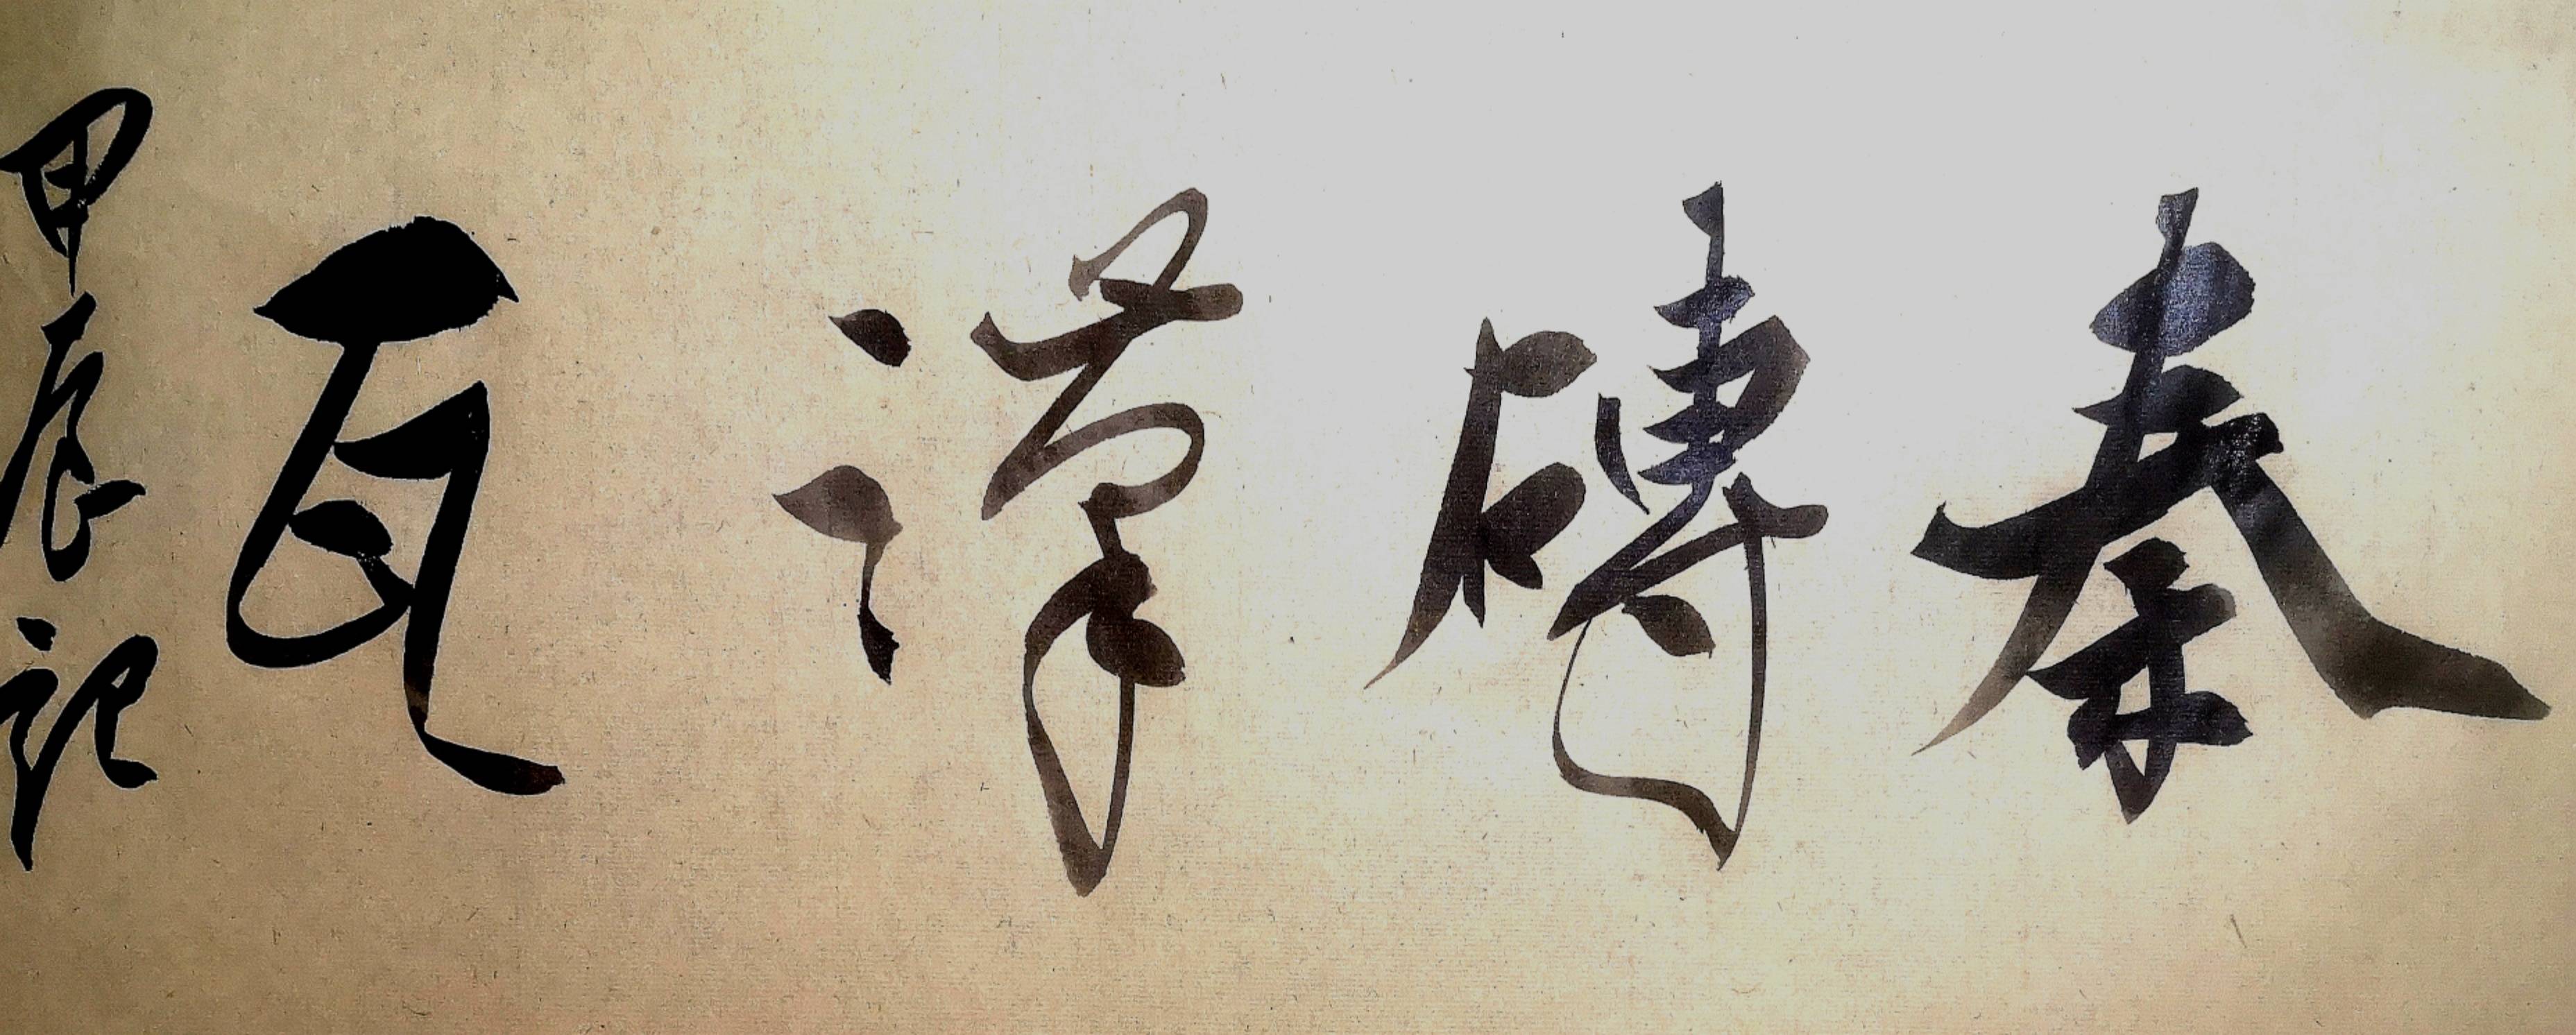 秦磚漢瓦
甲辰記